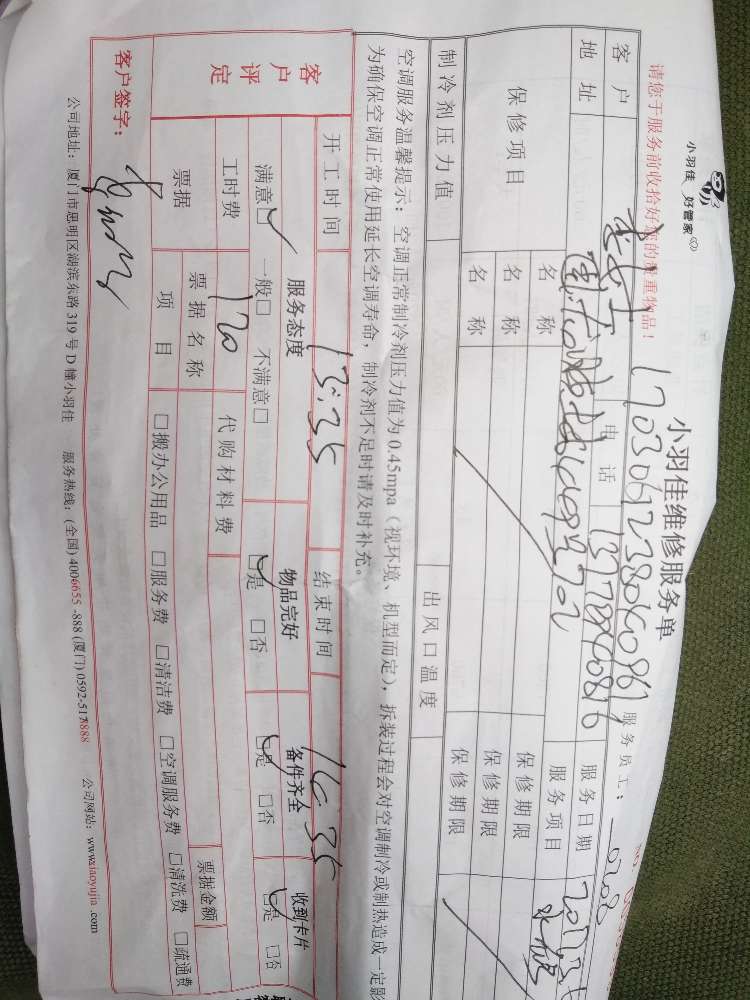 小羽佳 好管家
小羽佳维修服务单
请您于服务前收拾好您的贵重物品！
服务员工： 0208
客户 电话 服务日期
地址 服务项目 水槽
保修项目 名称 保修期限
名称 保修期限
名称 保修期限
制冷剂压力值 出风口温度
空调服务温馨提示：空调正常制冷剂压力值为0.45mpa（视环境、机型而定），拆装过程会对空调制冷或制热造成一定影
为确保空调正常使用延长空调寿命，制冷剂不足时请及时补充。
开工时间 13:35 结束时间 16:35
客户评定 服务态度 物品完好 备件齐全 收到卡片
满意□ 一般□ 不满意□ □是 □否 □是 □否 □是 □否
工时费 120 代购材料费
票据 票据名称 票据金额
项目 □搬办公用品 □服务费 □清洁费 □空调服务费 □清洗费 □疏通费
客户签字：
公司地址：厦门市思明区湖滨东路319号D幢小羽佳 服务热线：(全国)4006655-888(厦门)0592-5178888 公司网站：www.xiaoyujia.com